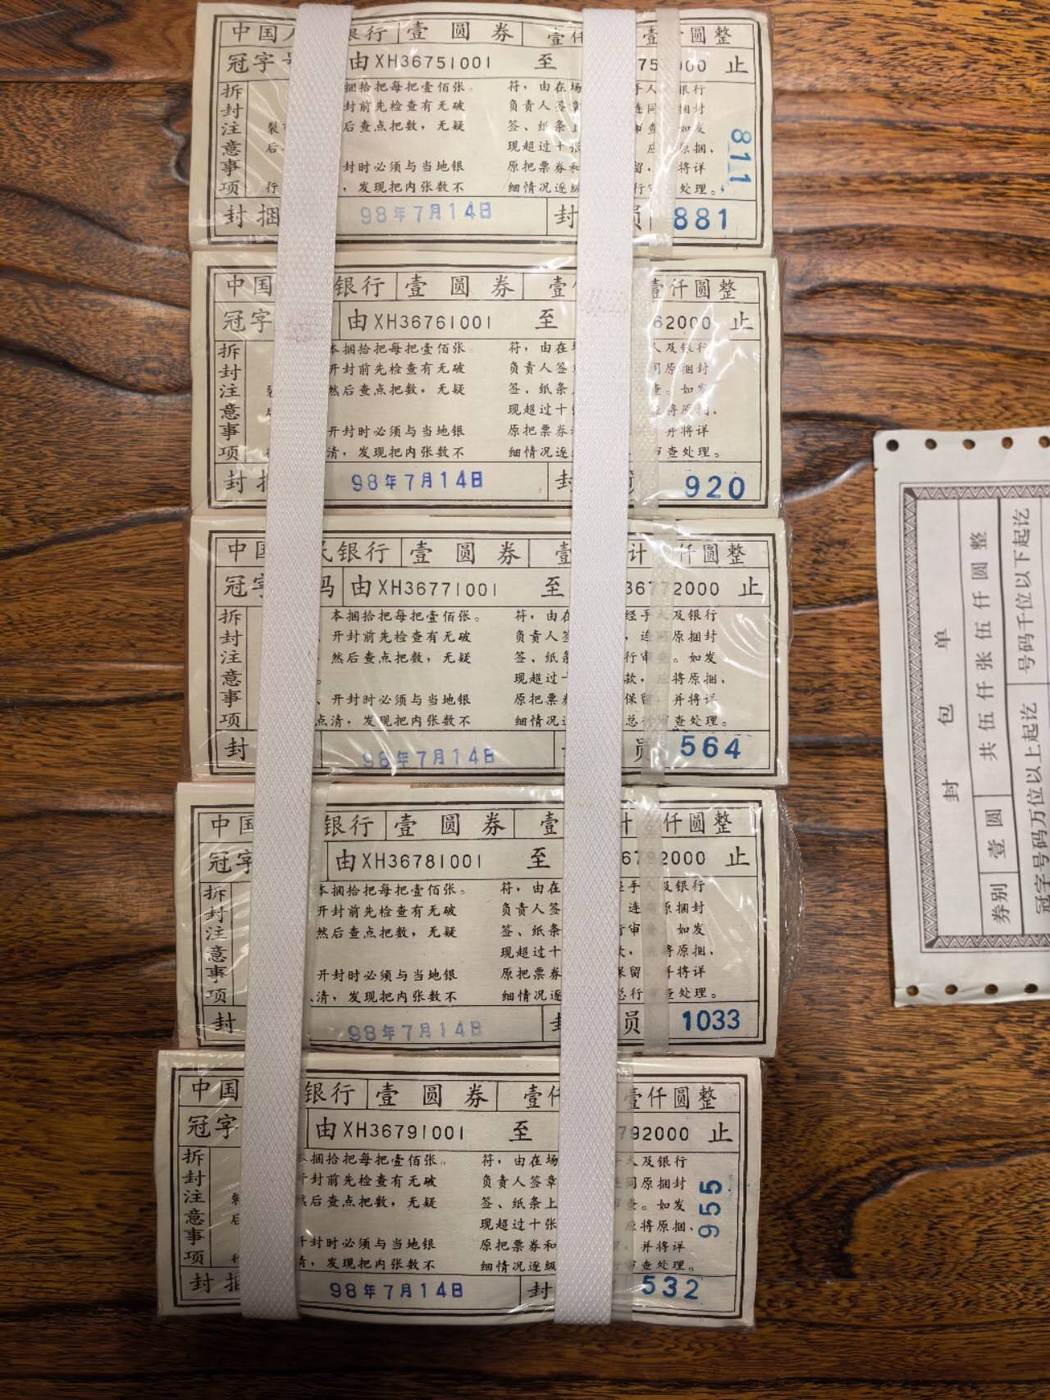 中国人 银行 壹圆券 壹仟 壹仟圆整
冠字号 由XH36751001 至 752000 止
拆封注意事项
捆拾把每把壹佰张。 符，由在场 手人 银行
封前先检查有无破 负责人签章 连同 捆封
裂 后查点把数，无疑 签、纸条上 审查 如发
后 现超过十张 应 原捆，
封时必须与当地银 原把票券和 留， 将详
行 ，发现把内张数不 细情况逐级 行审 处理。
811
封捆 98年7月14日 封 员 881
中国 银行 壹圆券 壹 壹仟圆整
冠字 由XH36761001 至 62000 止
拆封注意事项
本捆拾把每把壹佰张 符，由在 人及银行
开封前先检查有无破 负责人签 同原捆封
然后查点把数，无疑 签、纸条 查。如发
现超过十 应将原捆，
开封时必须与当地银 原把票券 并将详
清，发现把内张数不 细情况逐 审查处理。
封捆 98年7月14日 封 员 920
中国 民银行 壹圆券 壹 计 仟圆整
冠字 码 由XH36771001 至 36772000 止
拆封注意事项
本捆拾把每把壹佰张。 符，由在 经手人及银行
、开封前先检查有无破 负责人签 ，连同原捆封
，然后查点把数，无疑 签、纸条 行审查。如发
。 现超过十 款，应将原捆，
、开封时必须与当地银 原把票券 保留，并将详
点清，发现把内张数不 细情况逐 总行审查处理。
封 98年7月14日 员 564
中国 银行 壹圆券 壹 计 仟圆整
冠字 由XH36781001 至 6782000 止
拆封注意事项
本捆拾把每把壹佰张。 符，由在 经手人及银行
开封前先检查有无破 负责人签 连同原捆封
然后查点把数，无疑 签、纸条 行审查 如发
现超过十 款， 将原捆，
开封时必须与当地银 原把票券 保留 并将详
清，发现把内张数不 细情况逐 总行审查处理。
封 98年7月14日 封 员 1033
中国 银行 壹圆券 壹仟 壹仟圆整
冠字 由XH36791001 至 792000 止
拆封注意事项
本捆拾把每把壹佰张。 符，由在场 人及银行
开封前先检查有无破 负责人签章 同原捆封
然后查点把数，无疑 签、纸条上 查。如发
现超过十张 应将原捆，
开封时必须与当地银 原把票券和 ，并将详
清，发现把内张数不 细情况逐级 审查处理。
955
封捆 98年7月14日 封 532
封包单
券别 壹圆 共伍仟张伍仟圆整
冠字号码万位以上起讫 号码千位以下起讫